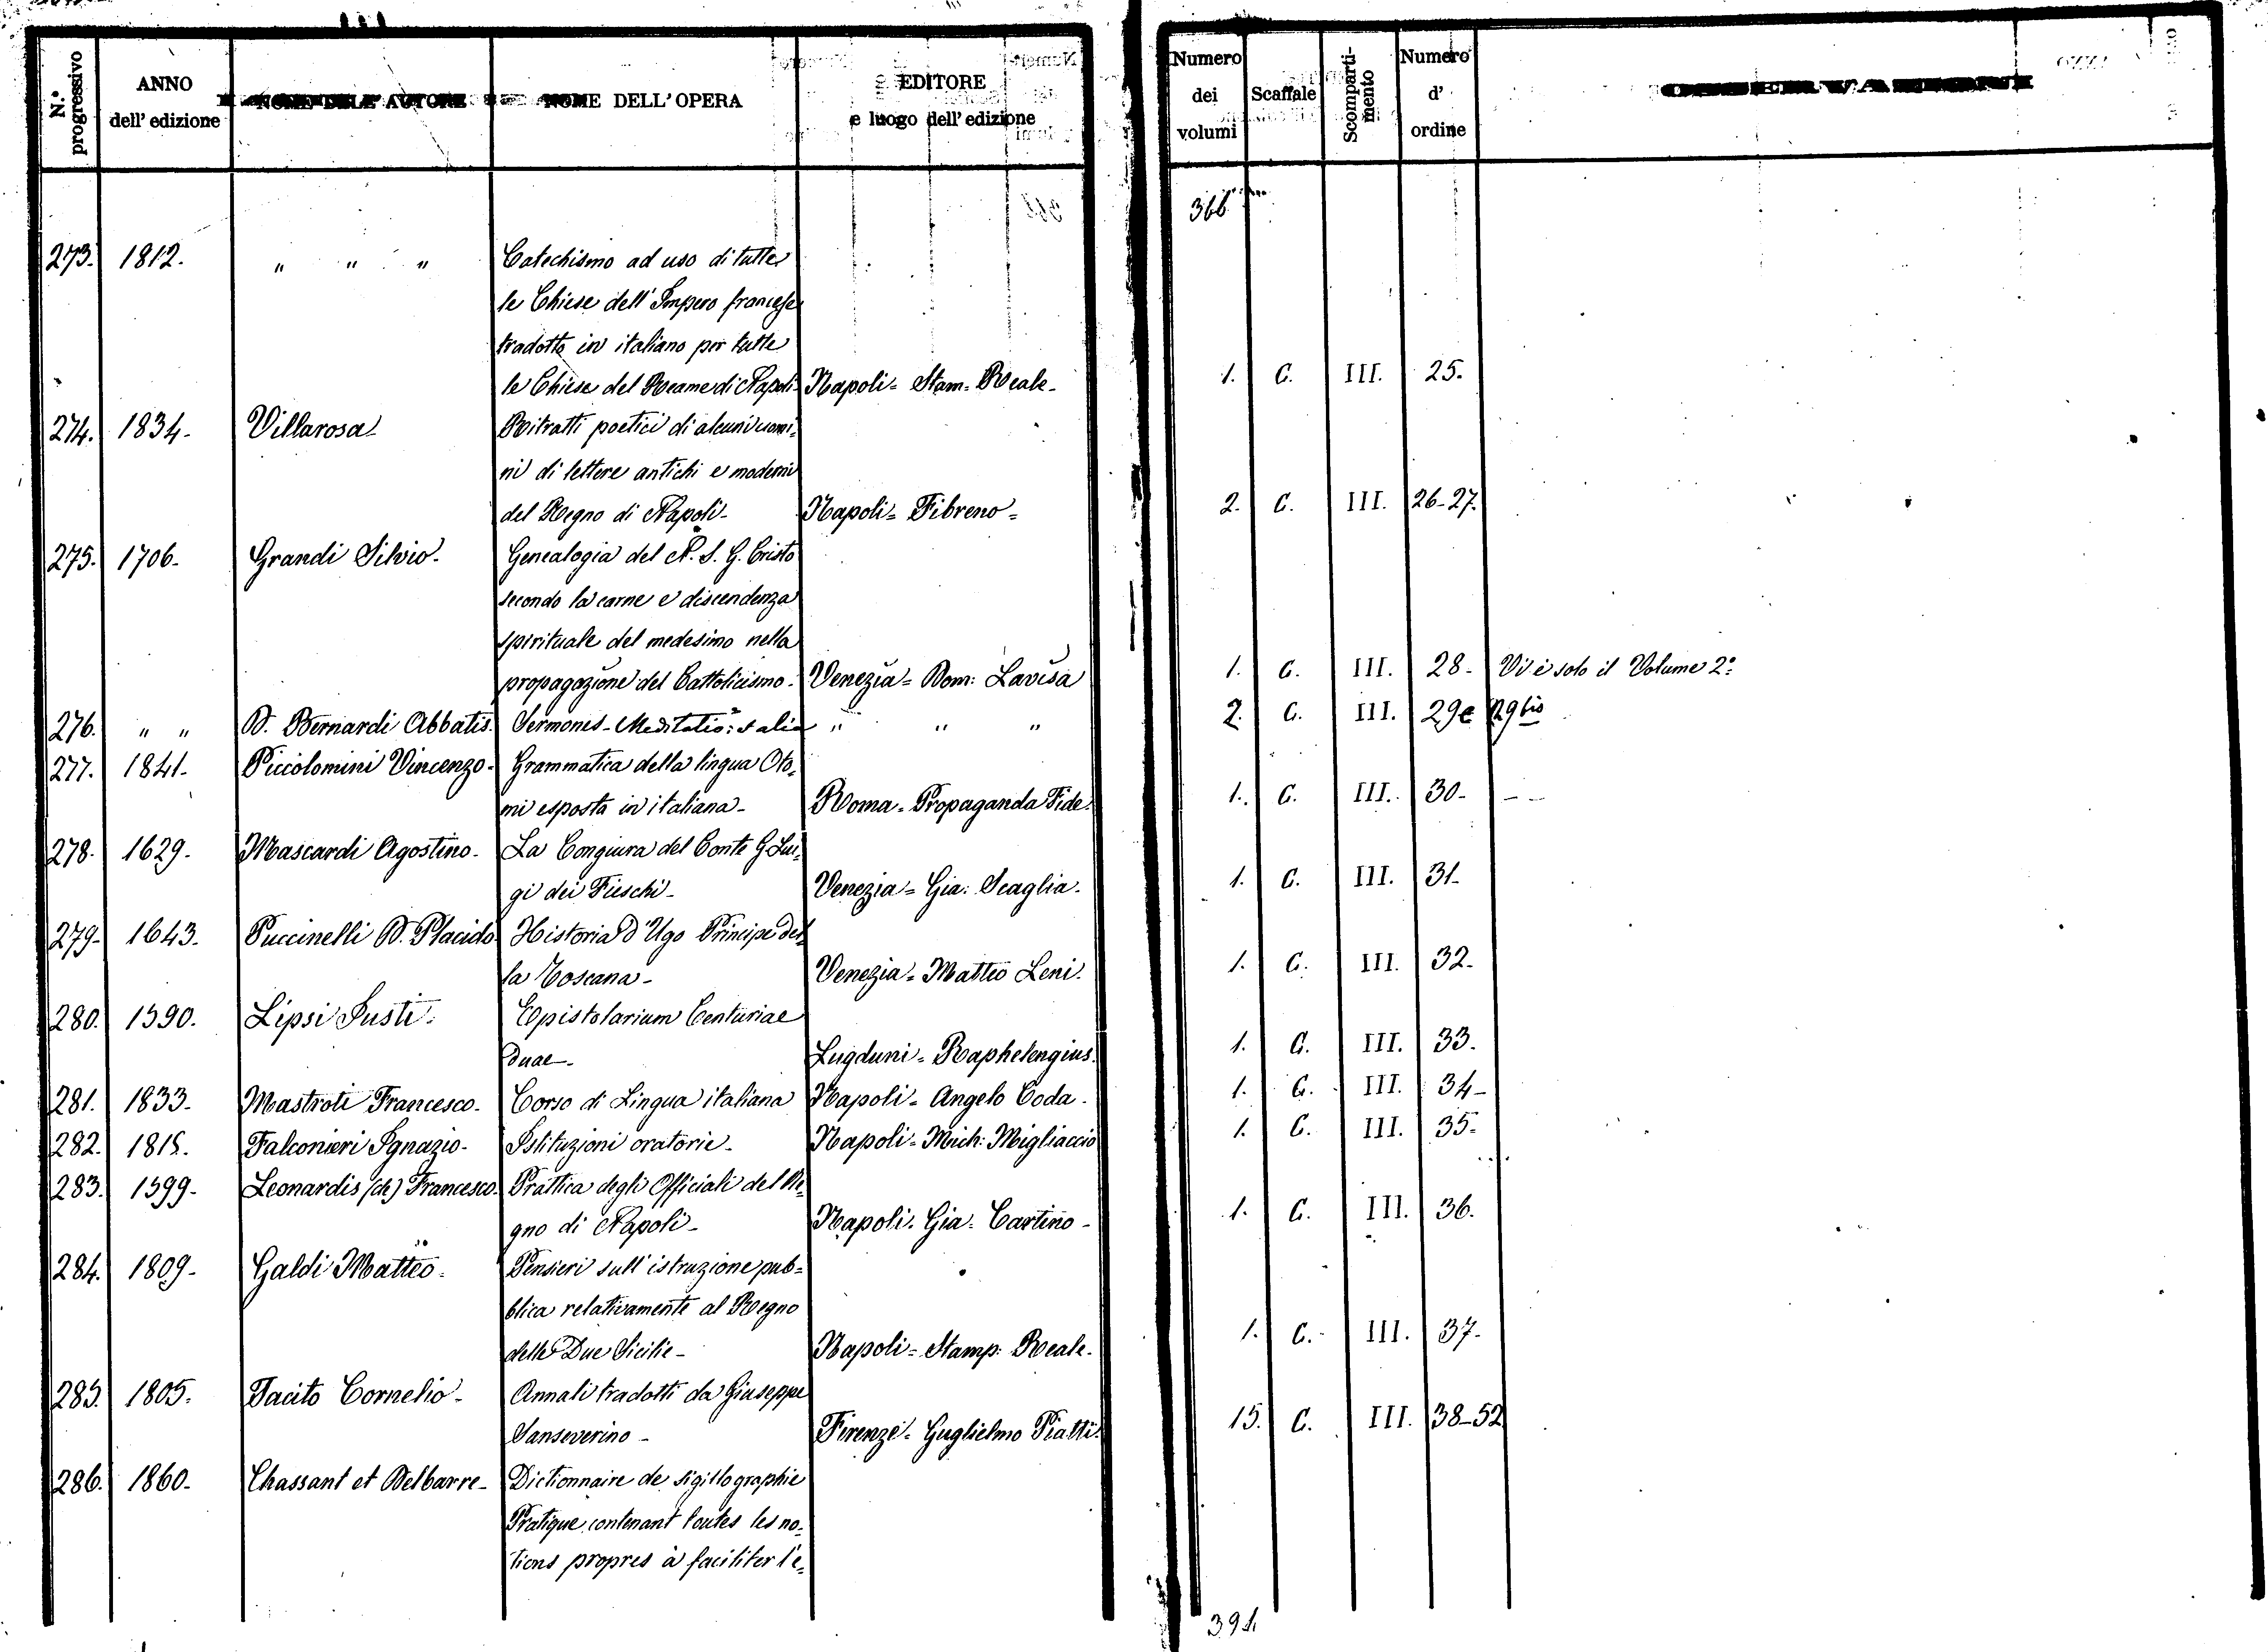 N.° progressivo
ANNO dell' edizione
NOME DELL' AUTORE
NOME DELL' OPERA
EDITORE e luogo dell' edizione
Numero dei volumi
Scaffale
Scomparti-mento
Numero d' ordine
OSSERVAZIONI
366
273. 1812. " " " Catechismo ad uso di tutte
le Chiese dell' Impero francese
tradotto in italiano per tutte
le Chiese del Reame di Napoli- Napoli= Stam= Reale- 1. C. III. 25.
274. 1834- Villarosa- Ritratti poetici di alcuni uomi-
ni di lettere antichi e moderni
del Regno di Napoli- Napoli= Fibreno= 2. C. III. 26-27.
275. 1706- Grandi Silvio- Genealogia del N. S. G. Cristo
secondo la carne e discendenza
spirituale del medesimo nella
propagazione del Cattolicismo- Venezia= Dom: Lavisa 1. C. III. 28- Vi è solo il Volume 2°
276. " " D. Bernardi Abbatis. Sermones- Meditatio: et alia " " " 2. C. III. 29 e 29 bis
277. 1841- Piccolomini Vincenzo- Grammatica della lingua Oto-
mi esposta in italiana- Roma= Propaganda Fide. 1. C. III. 30- - -
278. 1629- Mascardi Agostino- La Congiura del Conte G. Lui-
gi dei Fieschi- Venezia= Gia: Scaglia. 1. C. III. 31-
279- 1643- Puccinelli D. Placido Historia d'Ugo Principe del-
la Toscana- Venezia= Matteo Leni. 1. C. III. 32-
280. 1590. Lipsi Justi- Epistolarium Centuriae
duae- Lugduni= Raphelengius. 1. C. III. 33.
281. 1833- Mastroti Francesco- Corso di Lingua italiana Napoli= Angelo Coda. 1. C. III. 34-
282. 1818. Falconieri Ignazio- Istituzioni oratorie- Napoli= Mich: Migliaccio 1. C. III. 35-
283. 1599- Leonardis (de) Francesco- Prattica degli Officiali del Re-
gno di Napoli- Napoli. Gia: Cartino- 1. C. III. 36.
284. 1809- Galdi Matteo- Pensieri sull' istruzione pub-
blica relativamente al Regno
delle Due Sicilie- Napoli= Stamp: Reale- 1. C. III. 37-
285. 1805. Tacito Cornelio- Annali tradotti da Giuseppe
Sanseverino- Firenze= Guglielmo Piatti. 15. C. III. 38-52
286. 1860- Chassant et Delbarre- Dictionnaire de sigillographie
Pratique contenant toutes les no-
tions propres à faciliter l'é-
391